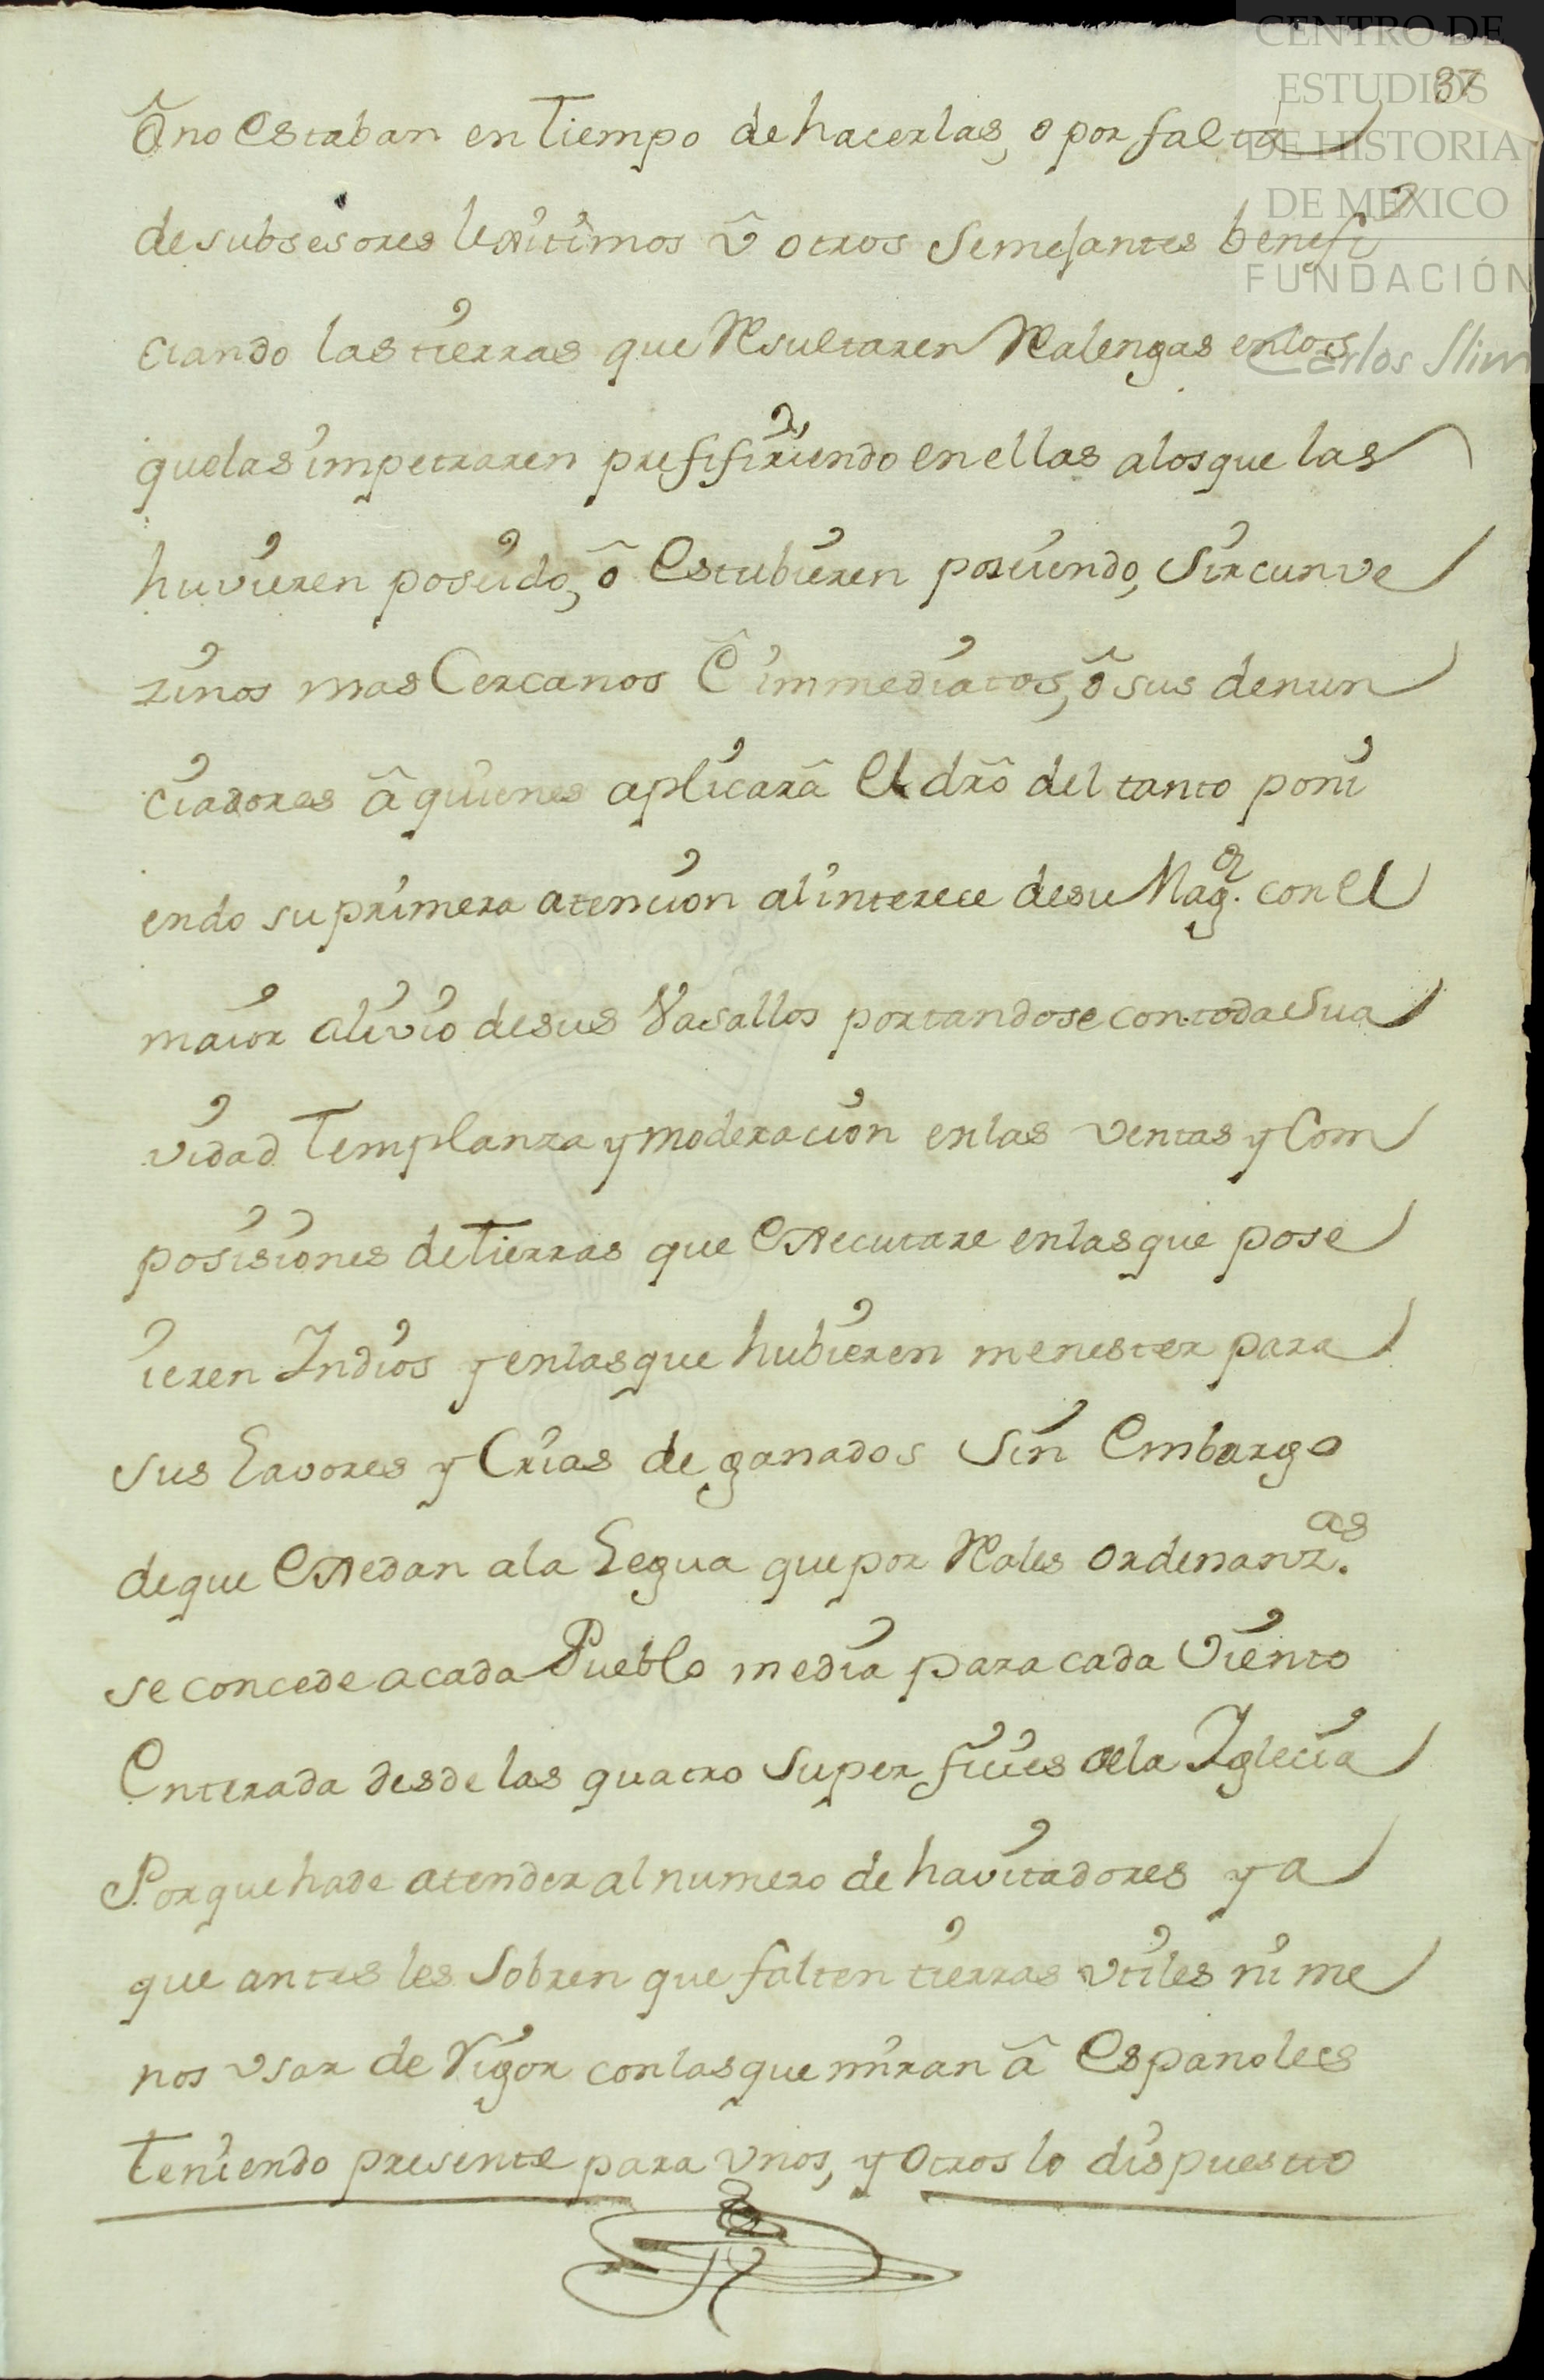 CENTRO DE
ESTUDIOS
DE HISTORIA
DE MEXICO
FUNDACIÓN
Carlos Slim
37
ô no estaban en tiempo de hacerlas, o por falta
de subsesores lexitimos û otros Semejantes benefi
ciando las tierras que Resultaren Realengas en los
que las impetraren prefifiriendo en ellas a los que las
huvieren poseido, ô Estubieren poseiendo, Sircunve
zinos mas Cercanos ê immediatos, ô sus denun
ciadores â quienes aplicarâ El drô del tanto poni
endo su primera atencion al interece de su Magᵈ. con el
maior alivio de sus Vasallos portandose con toda Sua
vidad Templanza y moderacion en las ventas y Com
posisiones de Tierras que Executare en las que pose
ieren Indios y en las que hubieren menester para
sus Lavores y Crias de ganados Sin Embargo
de que Exedan a la Legua que por Reales Ordenanz.ᵃˢ
se concede a cada Pueblo media para cada Viento
Enterada desde las quatro Superficies de la Iglecia
Porque hade atender al numero de havitadores y a
que antes les Sobren que falten tierras vtiles ni me
nos vsar de Rigor con las que miran â Espanoles
Teniendo presente para vnos, y Otros lo dispuesto